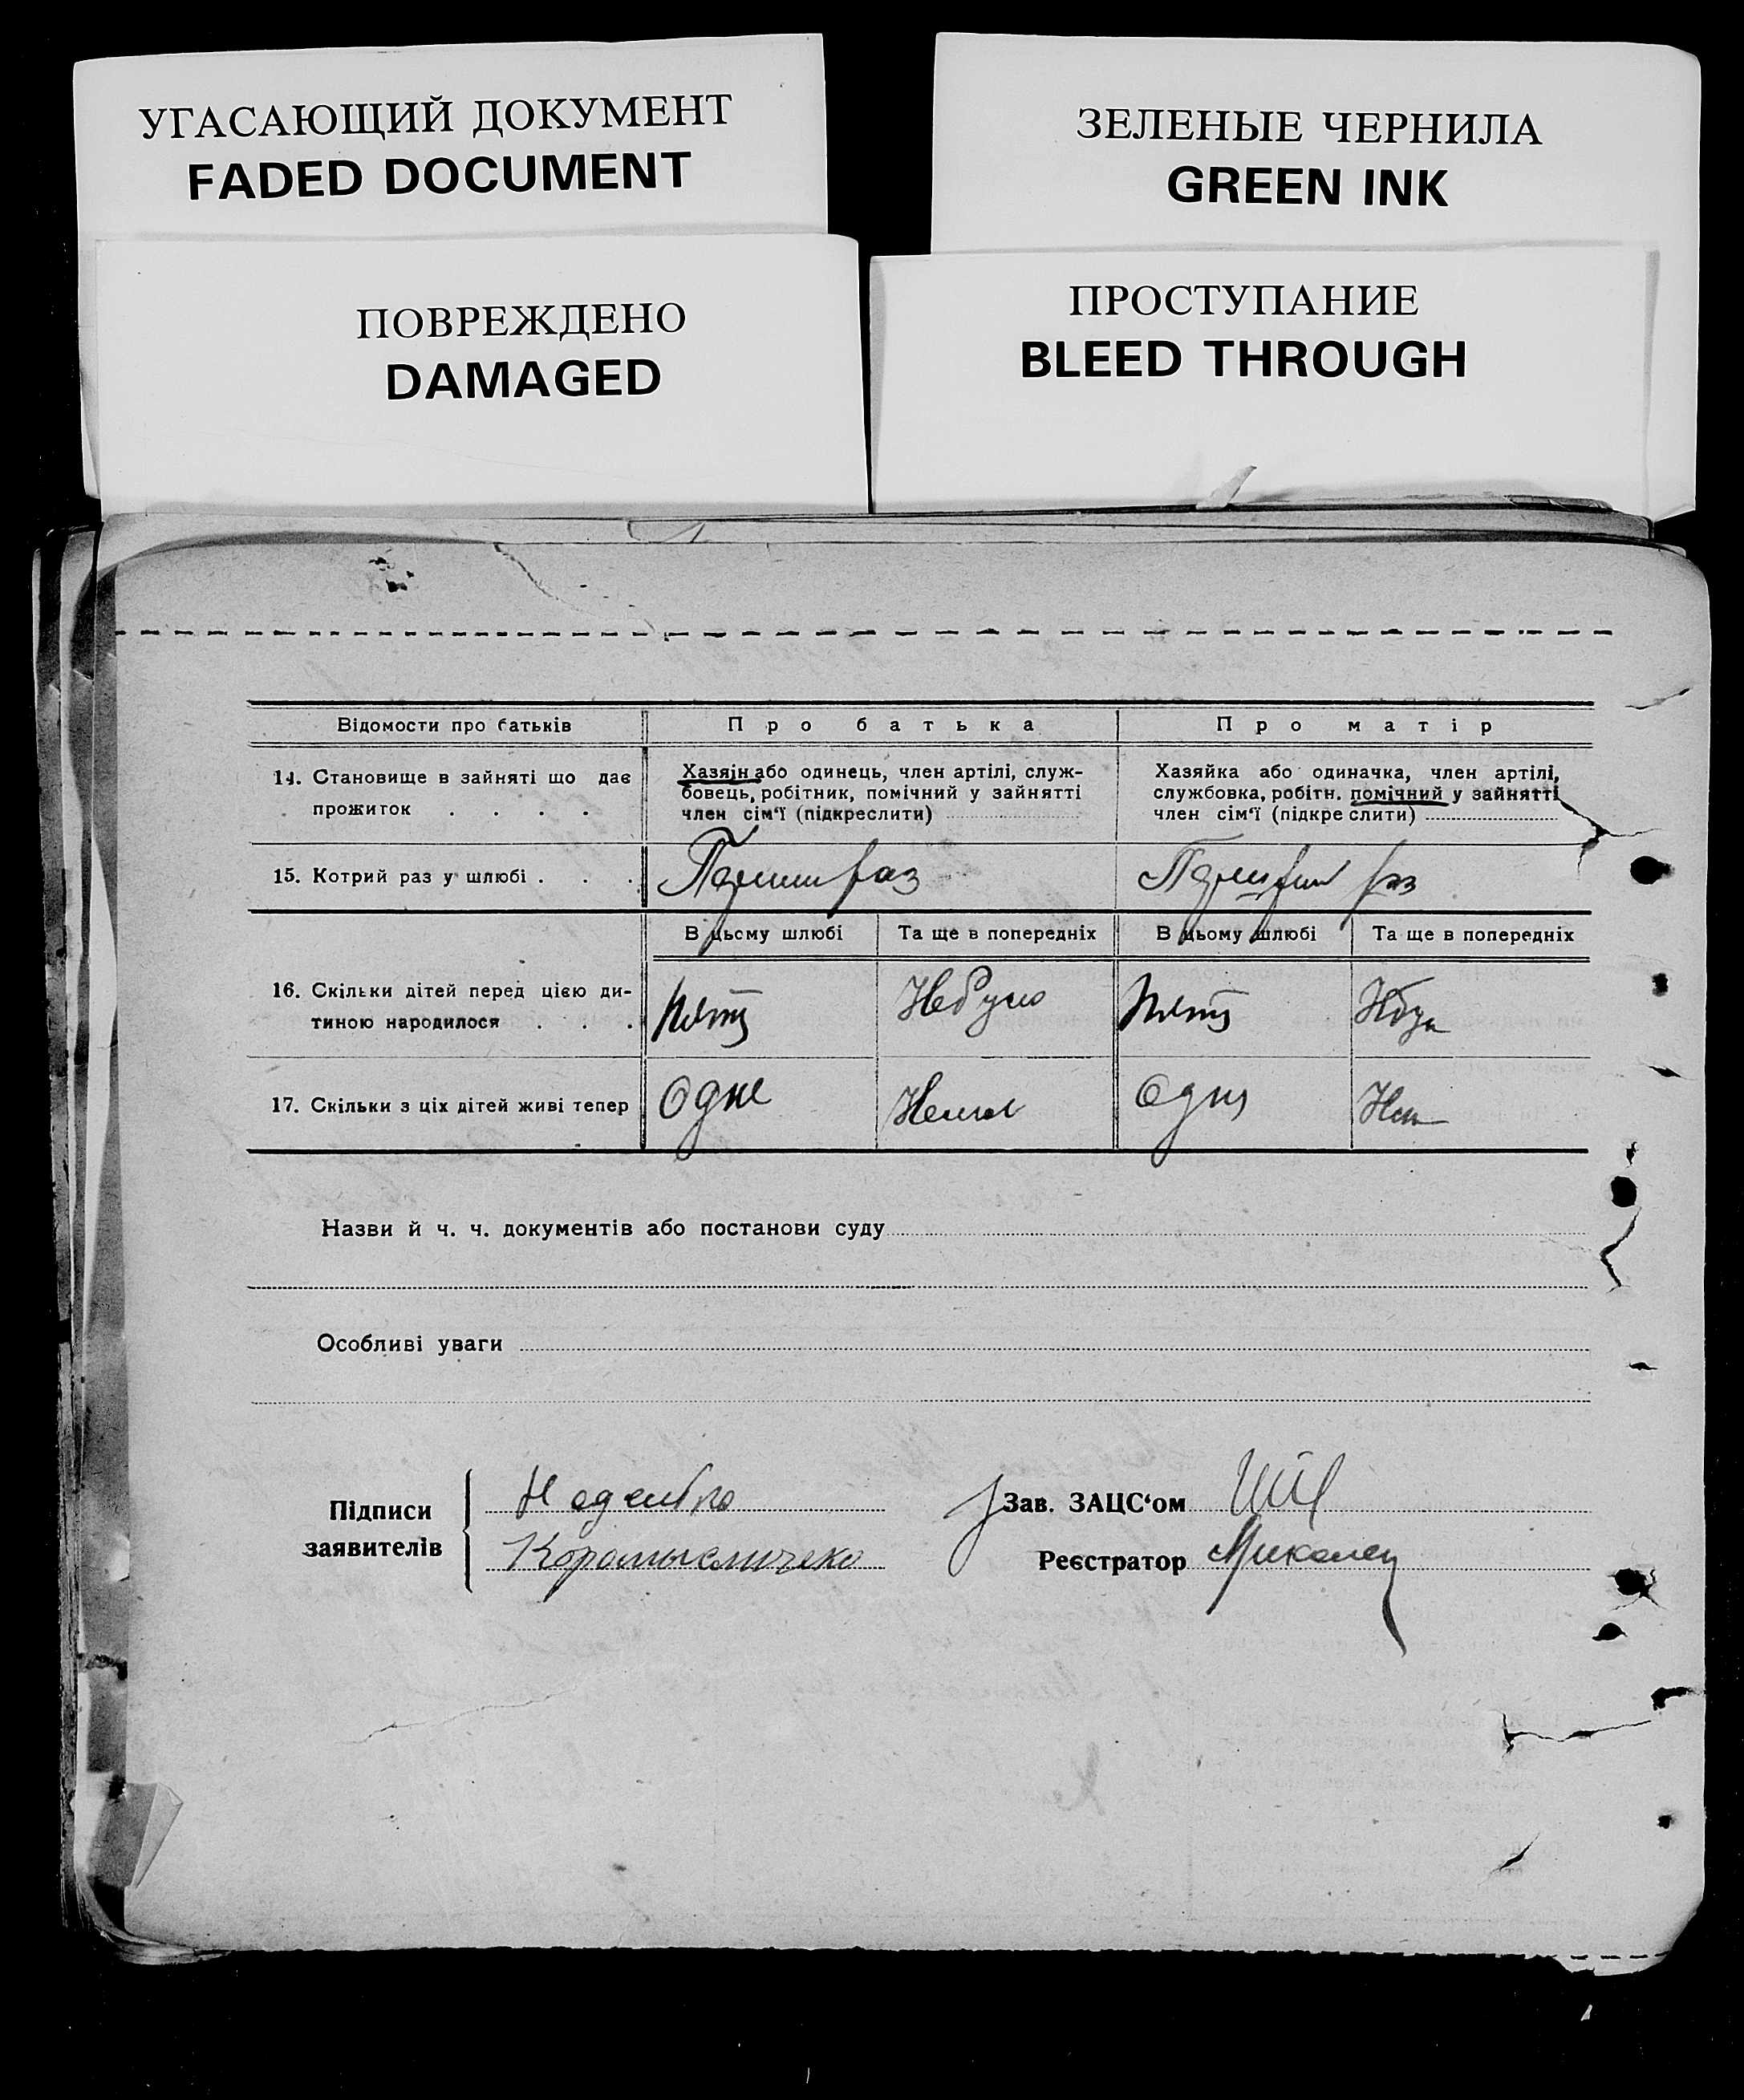 УГАСАЮЩИЙ ДОКУМЕНТ
FADED DOCUMENT
ЗЕЛЕНЫЕ ЧЕРНИЛА
GREEN INK
ПОВРЕЖДЕНО
DAMAGED
ПРОСТУПАНИЕ
BLEED THROUGH
Відомости про батьків
Про батька
Про матір
14. Становище в зайняті що дає
прожиток . . . .
Хазяїн або одинець, член артілі, служ-
бовець, робітник, помічний у зайнятті
член сім'ї (підкреслити)
Хазяйка або одиначка, член артілі,
службовка, робітн. помічний у зайнятті
член сім'ї (підкреслити)
15. Котрий раз у шлюбі . . .
Перший раз
Перший раз
В цьому шлюбі
Та ще в попередніх
В цьому шлюбі
Та ще в попередніх
16. Скільки дітей перед цією ди-
тиною народилося . . .
Пять
Не було
Пять
17. Скільки з ціх дітей живі тепер
Одне
Немає
Одне
Назви й ч. ч. документів або постанови суду
Особливі уваги
Підписи
заявителів
Зав. ЗАЦС'ом
Реєстратор